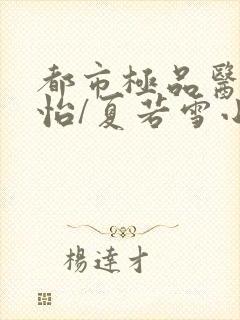 都市極品醫
怡/夏若雪小
楊達才